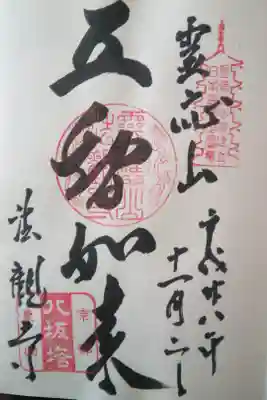 霊応山
平成廿八年
十一月二日
五智如来
法觀寺
八坂塔
京都